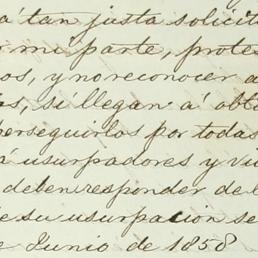 á tan justa solicit
mi parte, prote
os, y no reconocer a
si llegan á obt
perseguirlos por todas
á usurpadores y vi
deben responder de l
e su usurpacion se
e Junio de 1858